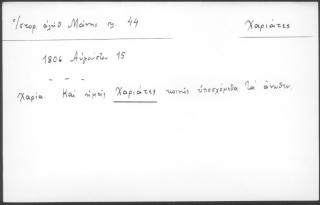 Ἱστορ. ἀλήθ. Μάνης σελ. 44
Χαριάτες
1806 Αὐγούστου 15
Χαρία. Καὶ ἡμεῖς Χαριάτες κοινῶς ὑποσχόμεθα τὰ ἄνωθεν.